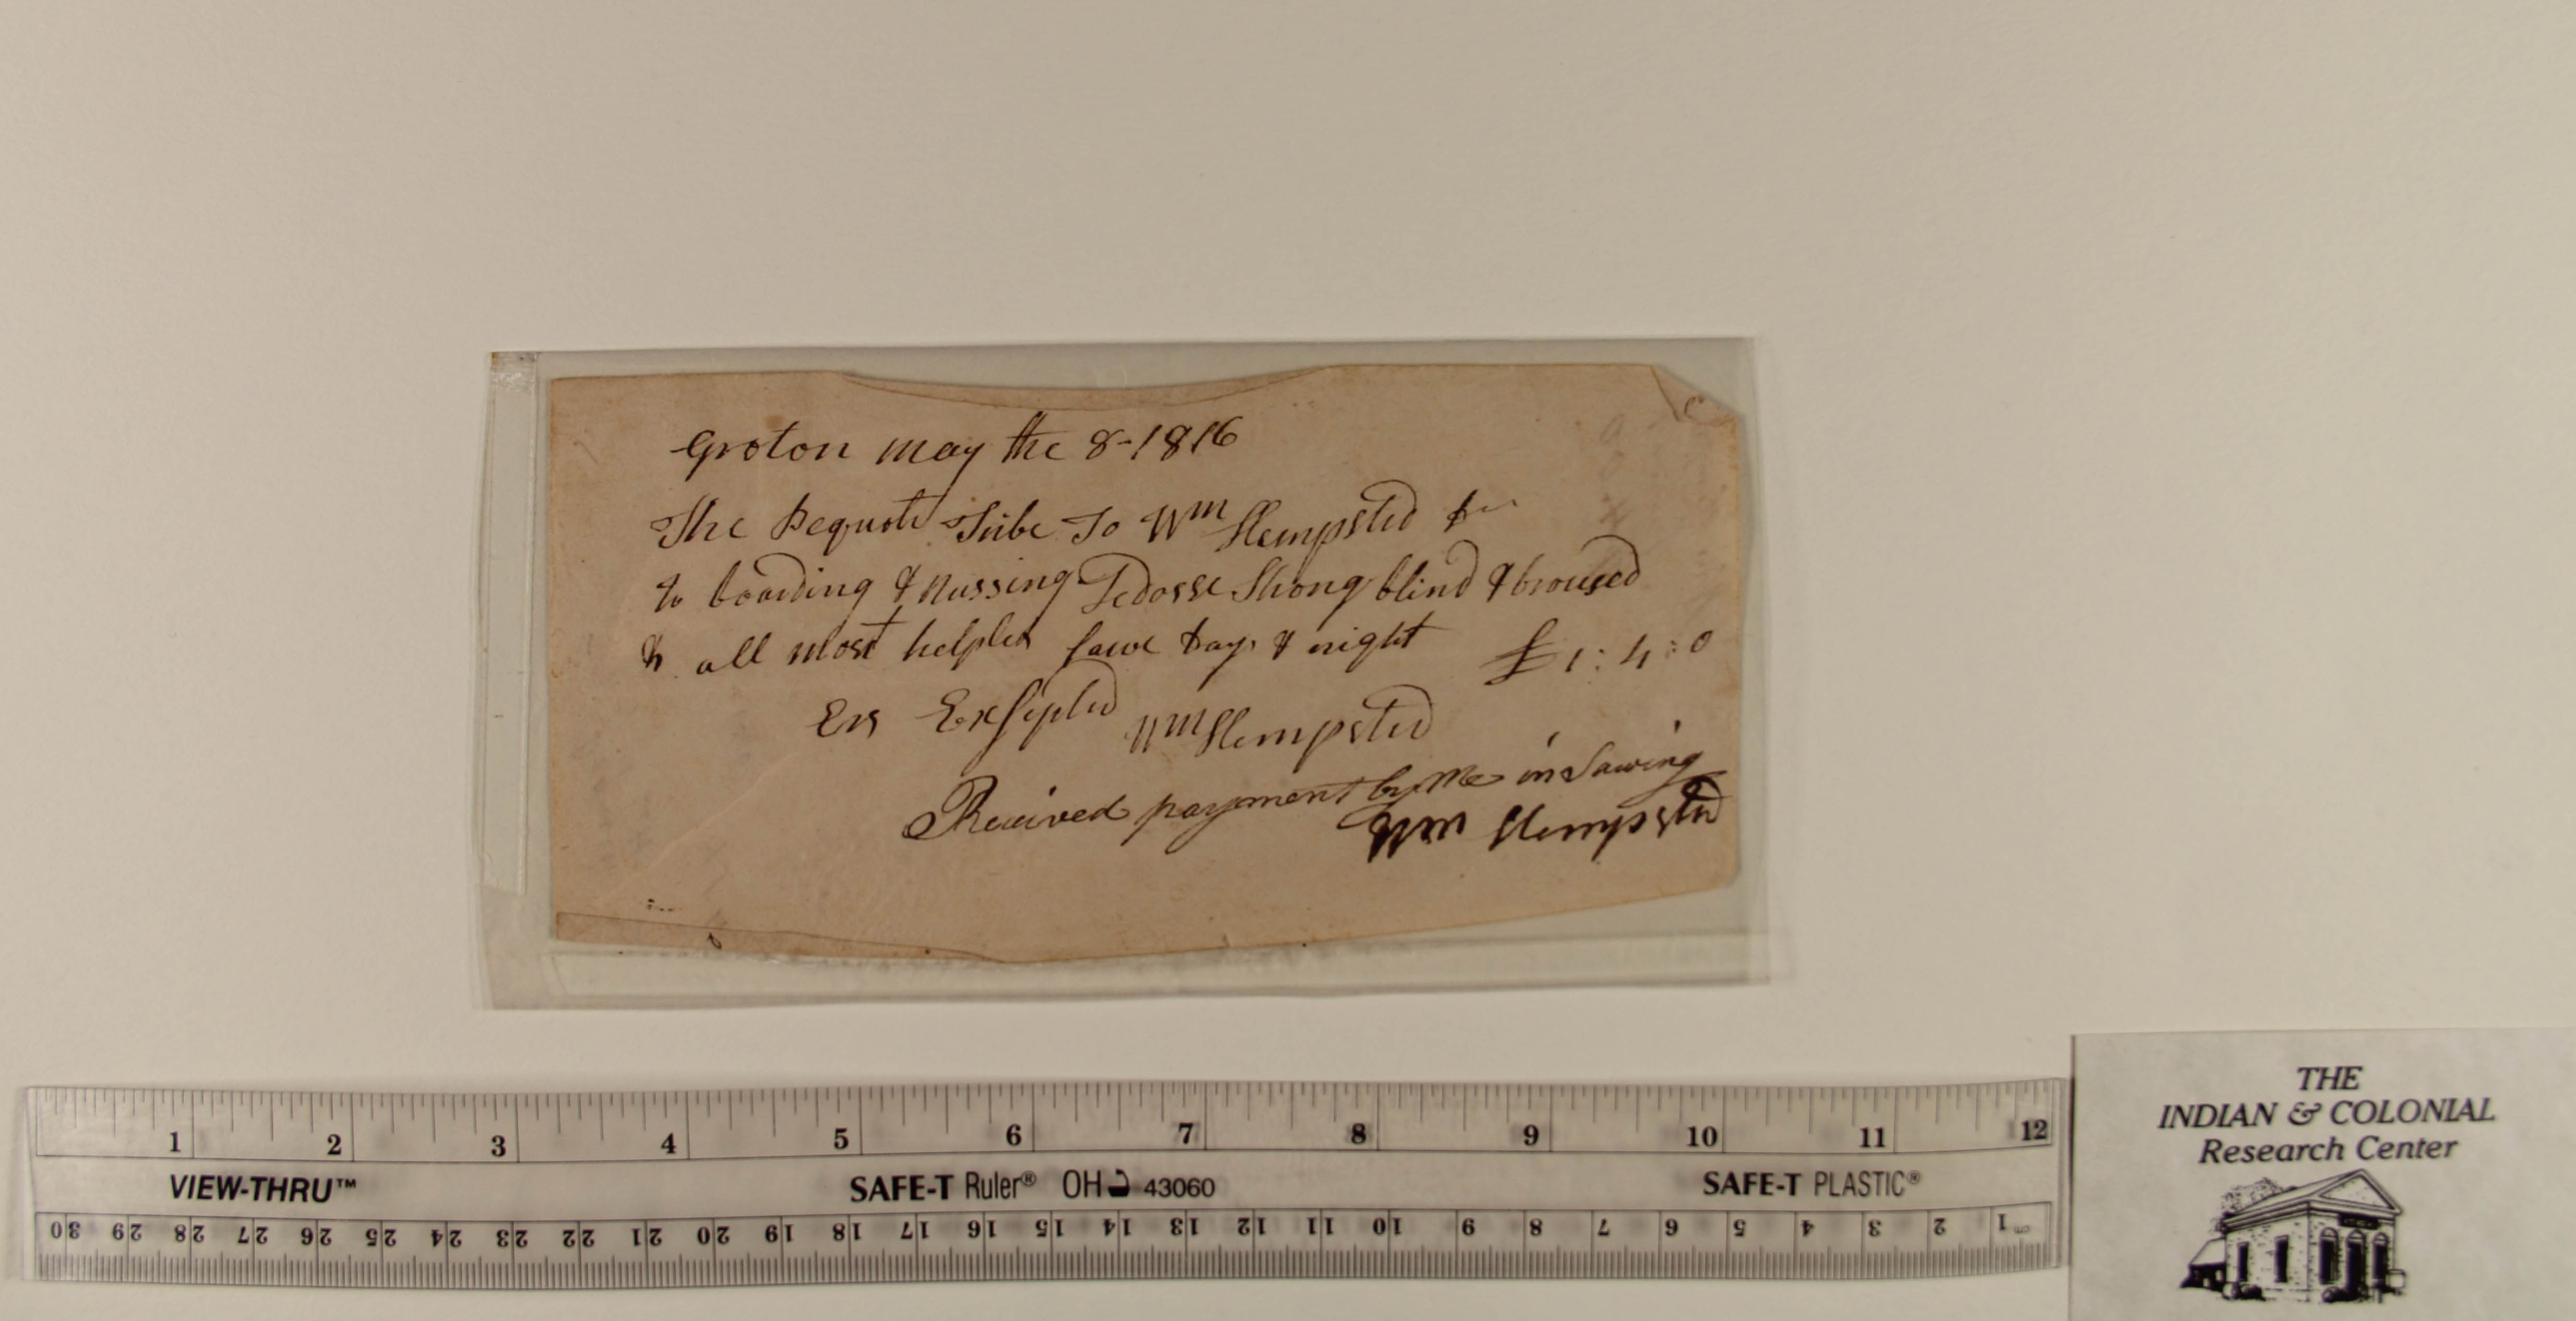 Groton may the 8-1816
The Pequott Tribe To Wm Hempsted Dr
to boarding & nussing Tedosse Shong blind & broused
& all most helples fowe days & night £1:4:0
Ers Exsepted Wm Hempsted
Received payment by Me in Sawing
Wm Hempsted
1 2 3 4 5 6 7 8 9 10 11 12
VIEW-THRU™ SAFE-T Ruler® OH 43060 SAFE-T PLASTIC®
30 29 28 27 26 25 24 23 22 21 20 19 18 17 16 15 14 13 12 11 10 9 8 7 6 5 4 3 2 1 cm
THE
INDIAN & COLONIAL
Research Center